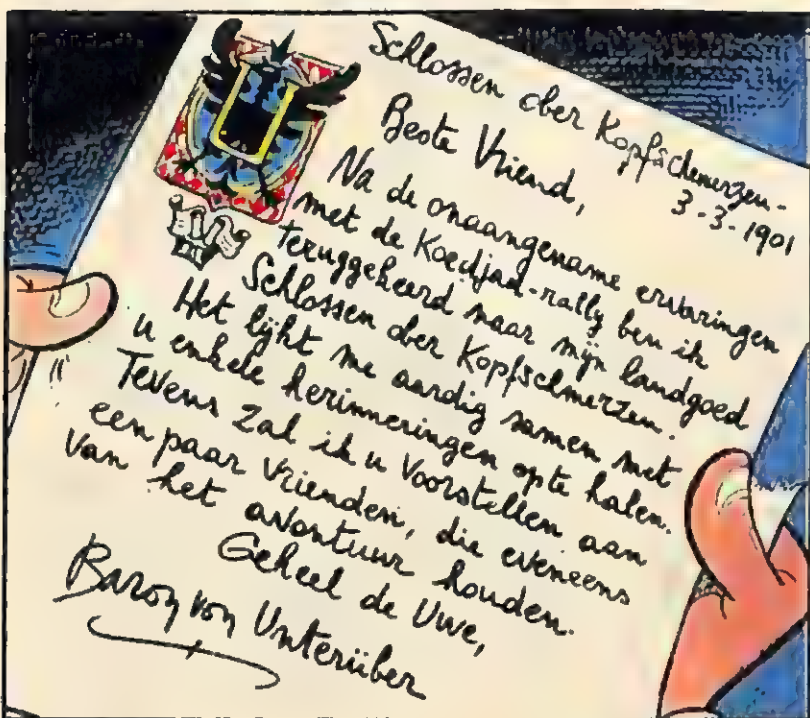 Schlossen ober Kopfschmerzen-
3-3-1901
Beste Vriend,
Na de onaangename ervaringen
met de Koedjad-rally ben ik
teruggekeerd naar mijn landgoed
Schlossen ober Kopfschmerzen.
Het lijkt me aardig samen met
u enkele herinneringen op te halen.
Tevens zal ik u voorstellen aan
een paar vrienden, die eveneens
van het avontuur houden.
Geheel de Uwe,
Baron von Unterüber